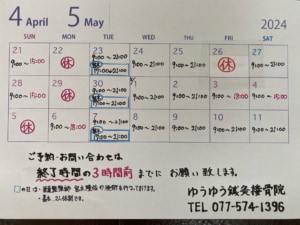 4 April 5 May 2024
SUN MON TUE WED THU FRI SAT
21 22 23 24 25 26 27
9:00~15:00 休 9:00~21:00 17:00~21:00 9:00~21:00 9:00~21:00 休 9:00~15:00
28 29 30 5/1 2 3 4
9:00~15:00 休 9:00~21:00 17:00~21:00 9:00~21:00 9:00~21:00 9:00~18:00 9:00~15:00
5 6 7 8 9 10 11
休 9:00~18:00 9:00~21:00 17:00~21:00 9:00~21:00 9:00~21:00 9:00~21:00 9:00~21:00
ご予約・お問い合わせは
終了時間の3時間前までに お願い致します。
ゆうゆう鍼灸接骨院
TEL 077-574-1396